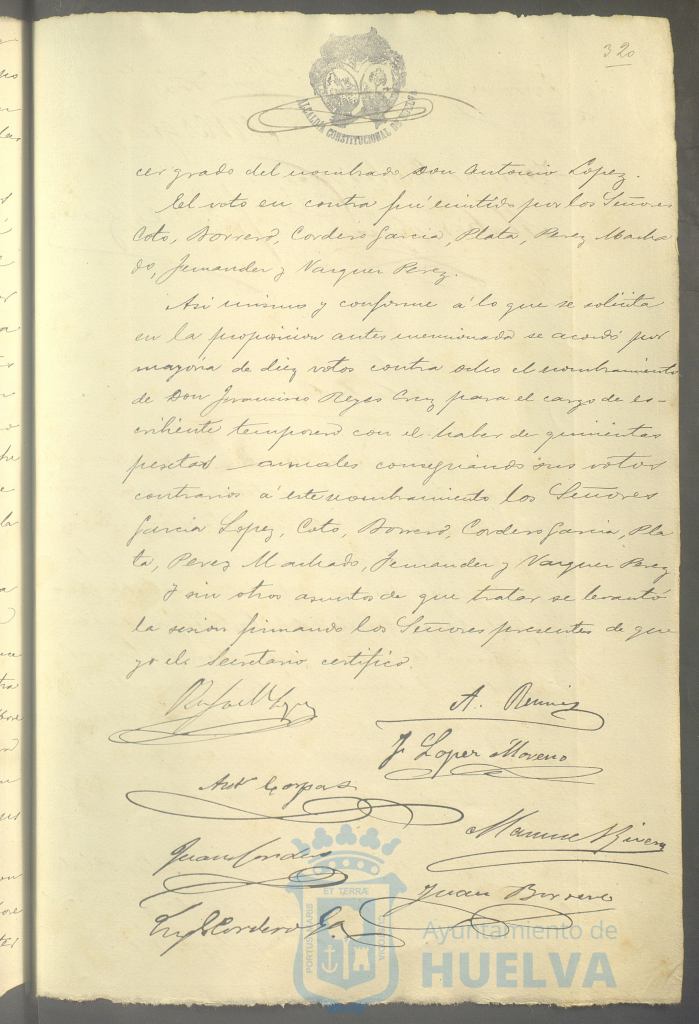 320
ALCALDIA CONSTITUCIONAL DE HUELVA
cer grado del nombrado Don Antonio Lopez.
El voto en contra fué emitido por los Señores
Coto, Borrero, Cordero Garcia, Plata, Perez Macha
do, Fernandez y Vazquez Perez.
Asi mismo y conforme á lo que se solicita
en la proposicion antes mencionada se acordó por
mayoria de diez votos contra ocho el nombramiento
de Don Francisco Reyes Cruz para el cargo de es-
cribiente temporero con el haber de quinientas
pesetas anuales consignando sus votos
contrarios á este nombramiento los Señores
Garcia Lopez, Coto, Borrero, Cordero Garcia, Pla
ta, Perez Machado, Fernandez y Vazquez Perez
Y sin otros asuntos de que tratar se levantó
la sesion firmando los Señores presentes de que
yo el Secretario certifico.
Rafael Lopez
A.
J. Lopez Moreno
Ant Corpas
Manuel Rivera
Juan
Juan Borrero
Cordero Ga
PORTUS MARIS ET TERRÆ CUSTODIA
Ayuntamiento de
HUELVA